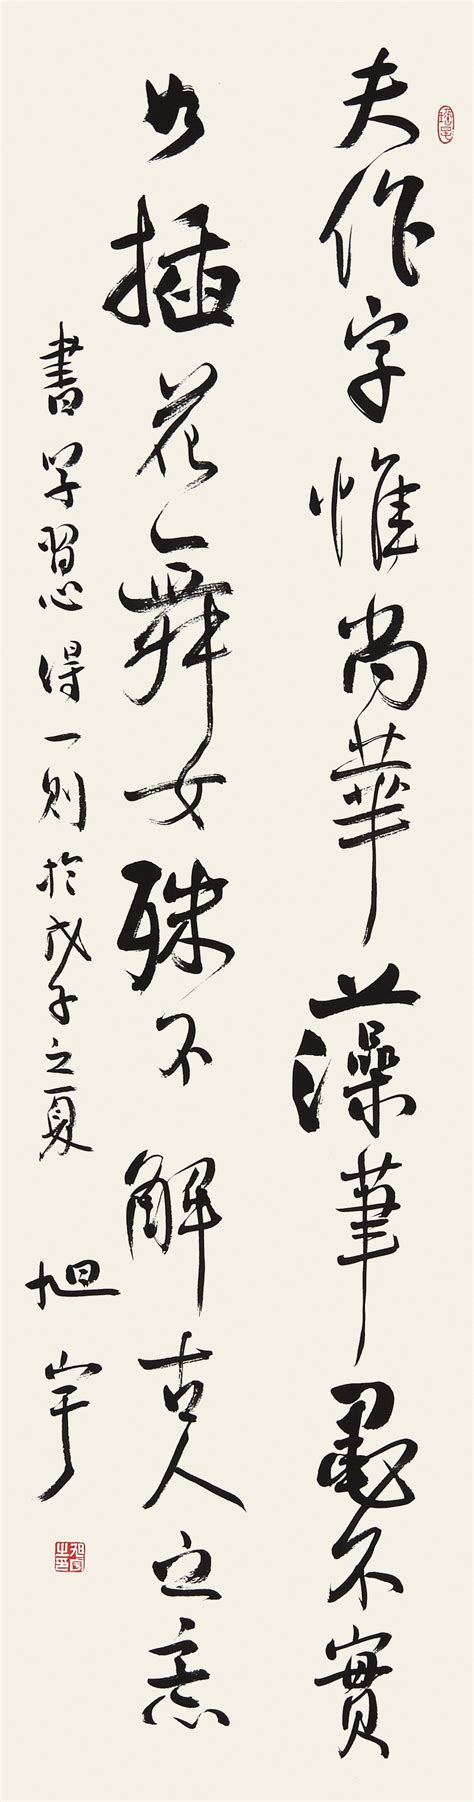 夫作字惟尚華藻筆墨不實
如插花舞女殊不解古人之意
書學習心得一則於戊子之夏
旭宇
旭宇之印